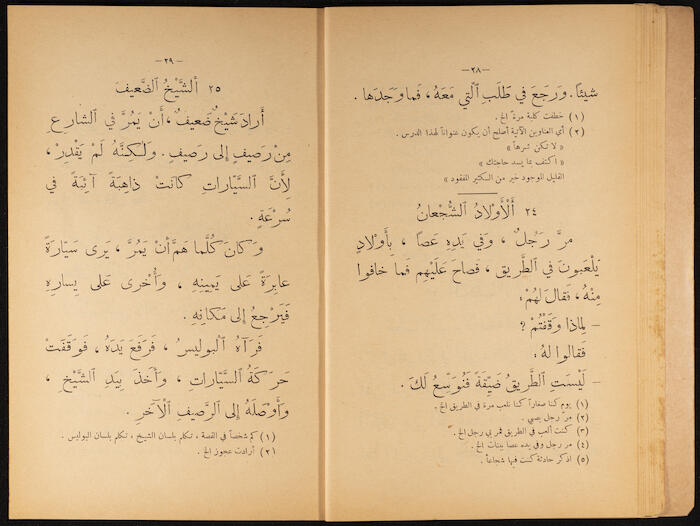 — ٢٨ —
شيئاً. وَرَجَعَ في طَلَبِ ٱلَّتي مَعَهُ، فَما وَجَدَها.
(١) خطفت كلبة مرة الخ.
(٢) أي العناوين الآتية أصلح أن يكون عنواناً لهذا الدرس.
« لا تكن شرهاً »
« اكتف بما يسد حاجتك »
القليل الموجود خير من الكثير المفقود »
٢٤ اَلْأَوْلادُ الشُّجْعانُ
مرَّ رَجُلٌ، وَفي يَدِهِ عَصاً، بِأَولادٍ
يَلْعَبونَ في الطَّريقِ، فَصاحَ عَلَيْهِم فَما خافوا
مِنْهُ، فَقالَ لَهُمْ:
– لِماذا وَقَفْتُمْ ؟
فَقالوا لَهُ:
– لَيْسَتِ الطَّريقُ ضَيِّقَةً فَنُوَسِّعُ لَكَ.
(١) يوم كنا صغاراً كنا نلعب مرة في الطريق الخ.
(٢) مرّ رجل بصبي.
(٣) كنت ألعب في الطريق فمر بي رجل الخ.
(٤) مر رجل وفي يده عصا ببنات الخ.
(٥) اذكر حادثة كنت فيها شجاعاً.
— ٢٩ —
٢٥ اَلشَّيْخُ الضَّعيفُ
أَرادَ شَيْخٌ ضَعيفٌ، أَنْ يَمُرَّ في الشّارِعِ
مِنْ رَصيفٍ إِلى رَصيفٍ. وَلٰكِنَّهُ لَمْ يَقْدِرْ،
لِأَنَّ السَّيّاراتِ كانَتْ ذاهِبَةً آئِبَةً في
سُرْعَةٍ.
وَكانَ كُلَّما هَمَّ أَنْ يَمُرَّ، يَرى سَيّارَةً
عابِرَةً عَلى يَمينِهِ، وَأُخْرى عَلى يَسارِهِ
فَيَرْجِعُ إِلى مَكانِهِ.
فَرَآهُ البُوليسُ، فَرَفَعَ يَدَهُ، فَوَقَفَتْ
حَرَكَةُ السَّيّاراتِ، وَأَخَذَ بِيَدِ الشَّيْخِ،
وَأَوْصَلَهُ إِلى الرَّصيفِ الْآخَرِ.
(١) كم شخصاً في القصة، تتكلم بلسان الشيخ، تتكلم بلسان البوليس.
(٢) أرادت عجوز الخ.